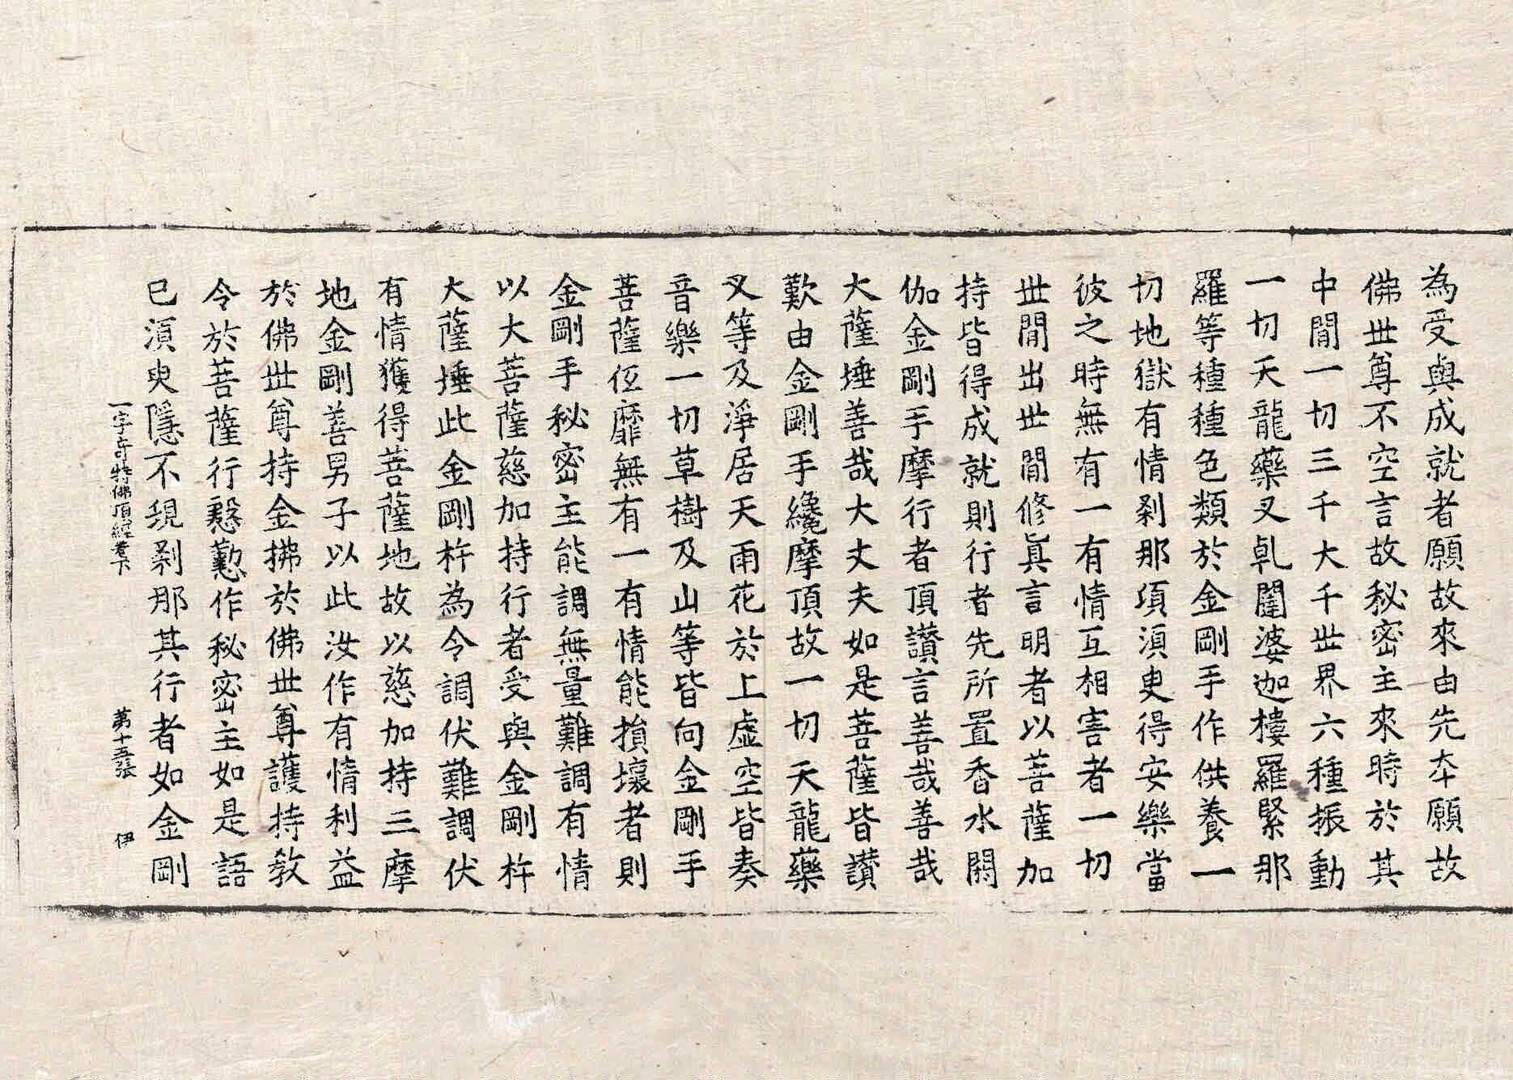 為受與成就者願故來由先本願故
佛世尊不空言故秘密主來時於其
中間一切三千大千世界六種振動
一切天龍藥叉乹闥婆迦樓羅緊那
羅等種種色類於金剛手作供養一
切地獄有情剎那項須臾得安樂當
彼之時無有一有情互相害者一切
世間出世間修真言明者以菩薩加
持皆得成就則行者先所置香水閼
伽金剛手摩行者頂讃言善哉善哉
大薩埵善哉大丈夫如是菩薩皆讃
歎由金剛手纔摩頂故一切天龍藥
叉等及淨居天雨花於上虛空皆奏
音樂一切草樹及山等皆向金剛手
菩薩低靡無有一有情能損壞者則
金剛手秘密主能調無量難調有情
以大菩薩慈加持行者受與金剛杵
大薩埵此金剛杵為令調伏難調伏
有情獲得菩薩地故以慈加持三摩
地金剛善男子以此汝作有情利益
於佛世尊持金拂於佛世尊護持教
令於菩薩行慇懃作秘密主如是語
已須臾隱不現剎那其行者如金剛
一字奇特佛頂經卷下 第十五張 伊